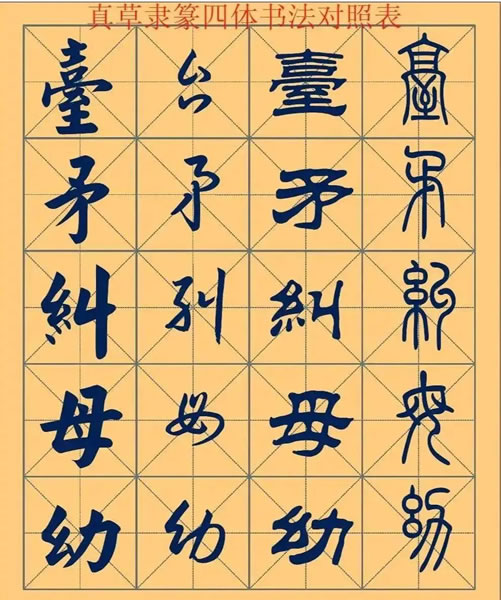 真草隶篆四体书法对照表
臺 台 臺 臺
矛 矛 矛 矛
糾 糾 糾 糾
母 母 母 母
幼 幼 幼 幼